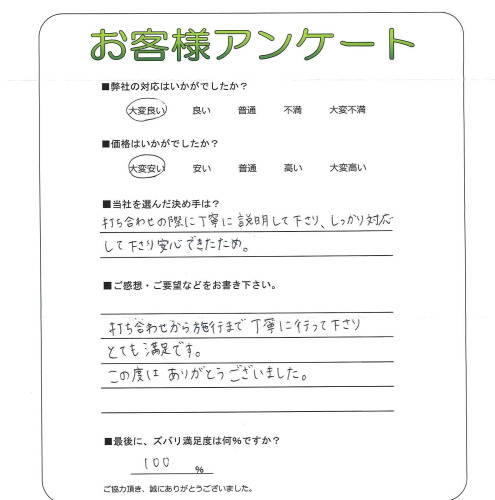 お客様アンケート
■弊社の対応はいかがでしたか？
大変良い 良い 普通 不満 大変不満
■価格はいかがでしたか？
大変安い 安い 普通 高い 大変高い
■当社を選んだ決め手は？
打ち合わせの際に丁寧に説明して下さり、しっかり対応
して下さり安心できたため。
■ご感想・ご要望などをお書き下さい。
打ち合わせから施行まで丁寧に行って下さり
とても満足です。
この度は ありがとうございました。
■最後に、ズバリ満足度は何％ですか？
100 ％
ご協力頂き、誠にありがとうございました。